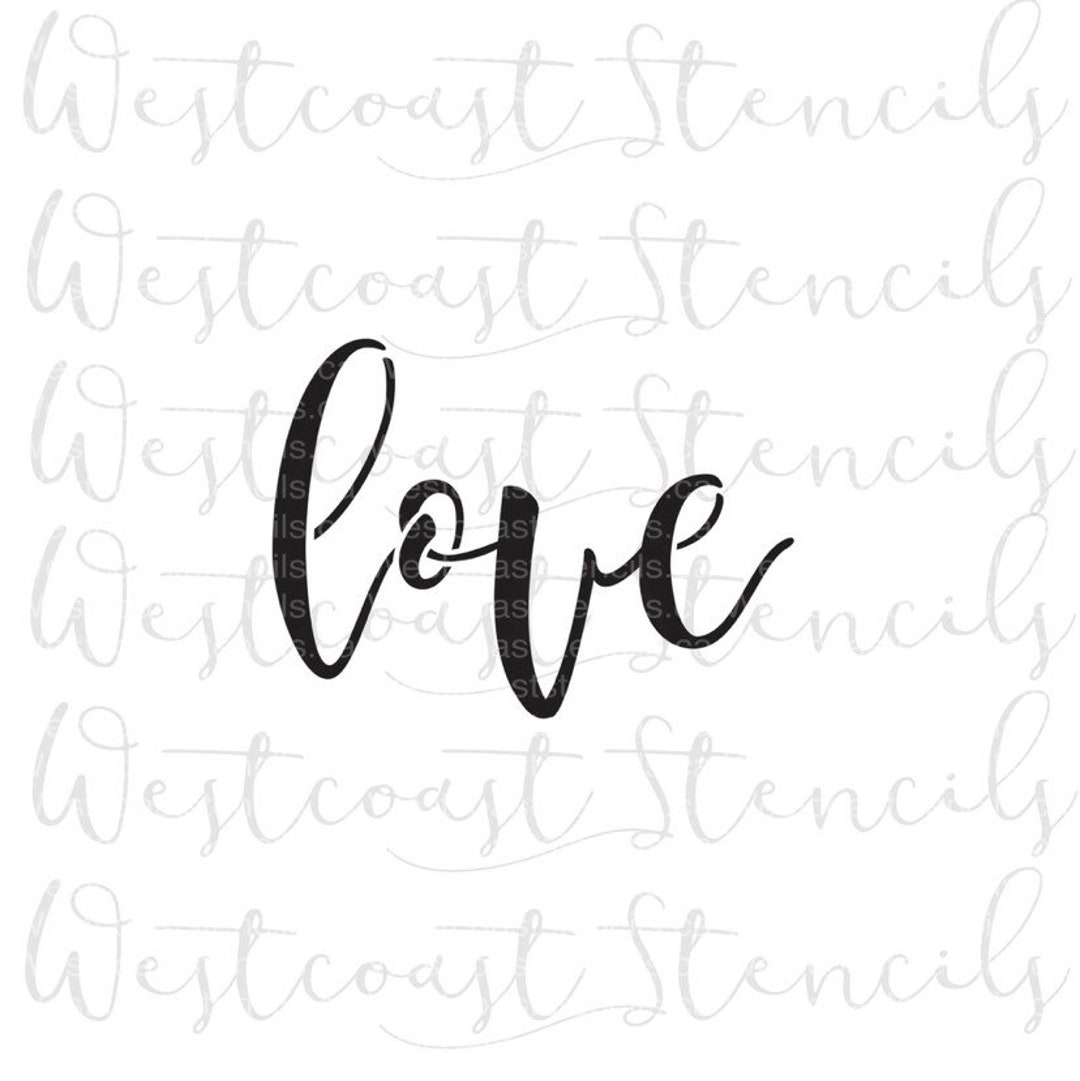 Westcoast Stencils
Westcoast Stencils
Westcoast Stencils
love
Westcoast Stencils
Westcoast Stencils
Westcoast Stencils